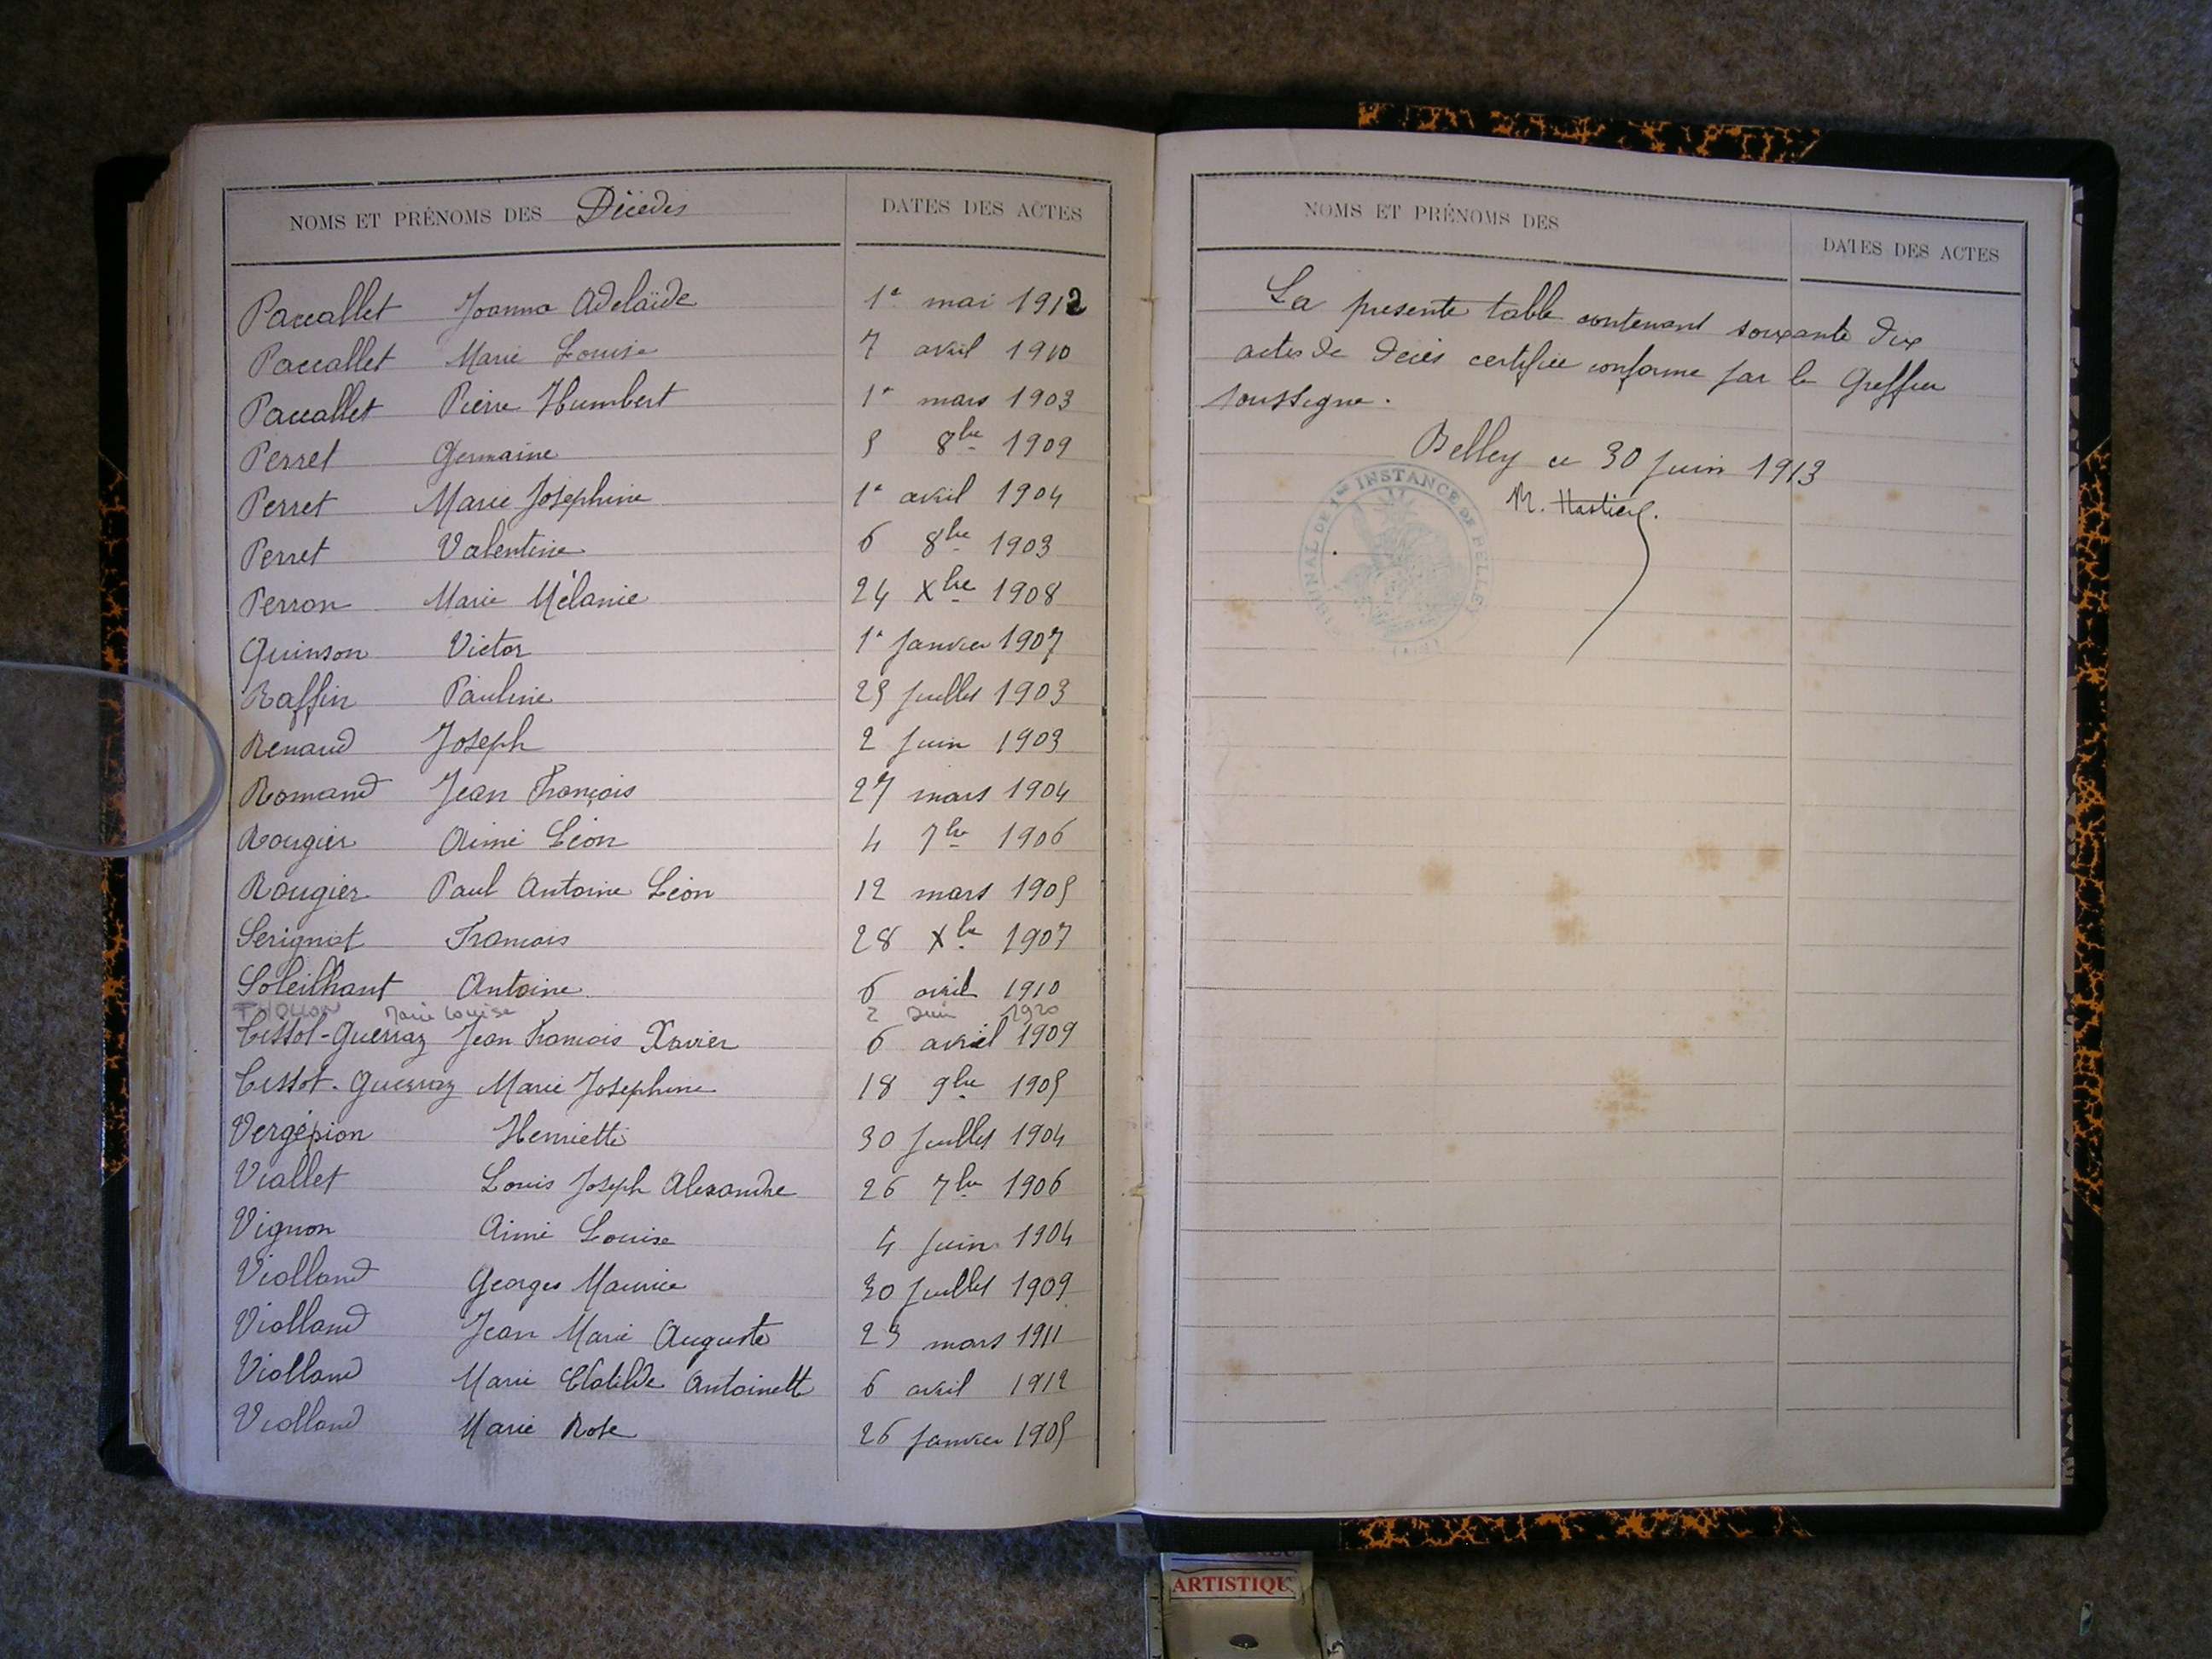 NOMS ET PRÉNOMS DES Décédés DATES DES ACTES
Paccallet Joanna Adelaïde 1er mai 1912
Paccallet Marie Louise 7 avril 1910
Paccallet Pierre Humbert 1er mars 1903
Perret Germaine 5 8bre 1909
Perret Marie Joséphine 1er avril 1904
Perret Valentine 6 8bre 1903
Perron Marie Mélanie 24 Xbre 1908
Quinson Victor 1er Janvier 1907
Raffin Pauline 25 Juillet 1903
Renaud Joseph 2 Juin 1903
Romand Jean François 27 mars 1904
Rougier Aimé Léon 4 7bre 1906
Rougier Paul Antoine Léon 12 mars 1905
Serignat Francois 28 Xbre 1907
Soleilhant Antoine 6 avril 1910
Marie Louise 2 Juin 1920
Tissot-Guerraz Jean Francois Xavier 6 avril 1909
Tissot-Guerraz Marie Josephine 18 9bre 1905
Vergépion Henriette 30 Juillet 1904
Viallet Louis Joseph Alexandre 26 7bre 1906
Vignon Aimé Louise 4 Juin 1904
Violland Georges Maurice 30 Juillet 1909
Violland Jean Marie Auguste 25 mars 1911
Violland Marie Clotilde Antoinette 6 avril 1912
Violland Marie Rose 26 Janvier 1905
NOMS ET PRÉNOMS DES DATES DES ACTES
La presente table contenant soixante dix
actes de décès certifiée conforme par le Greffier
soussigné.
Belley ce 30 Juin 1913
TRIBUNAL DE 1re INSTANCE DE BELLEY
ARTISTIQU